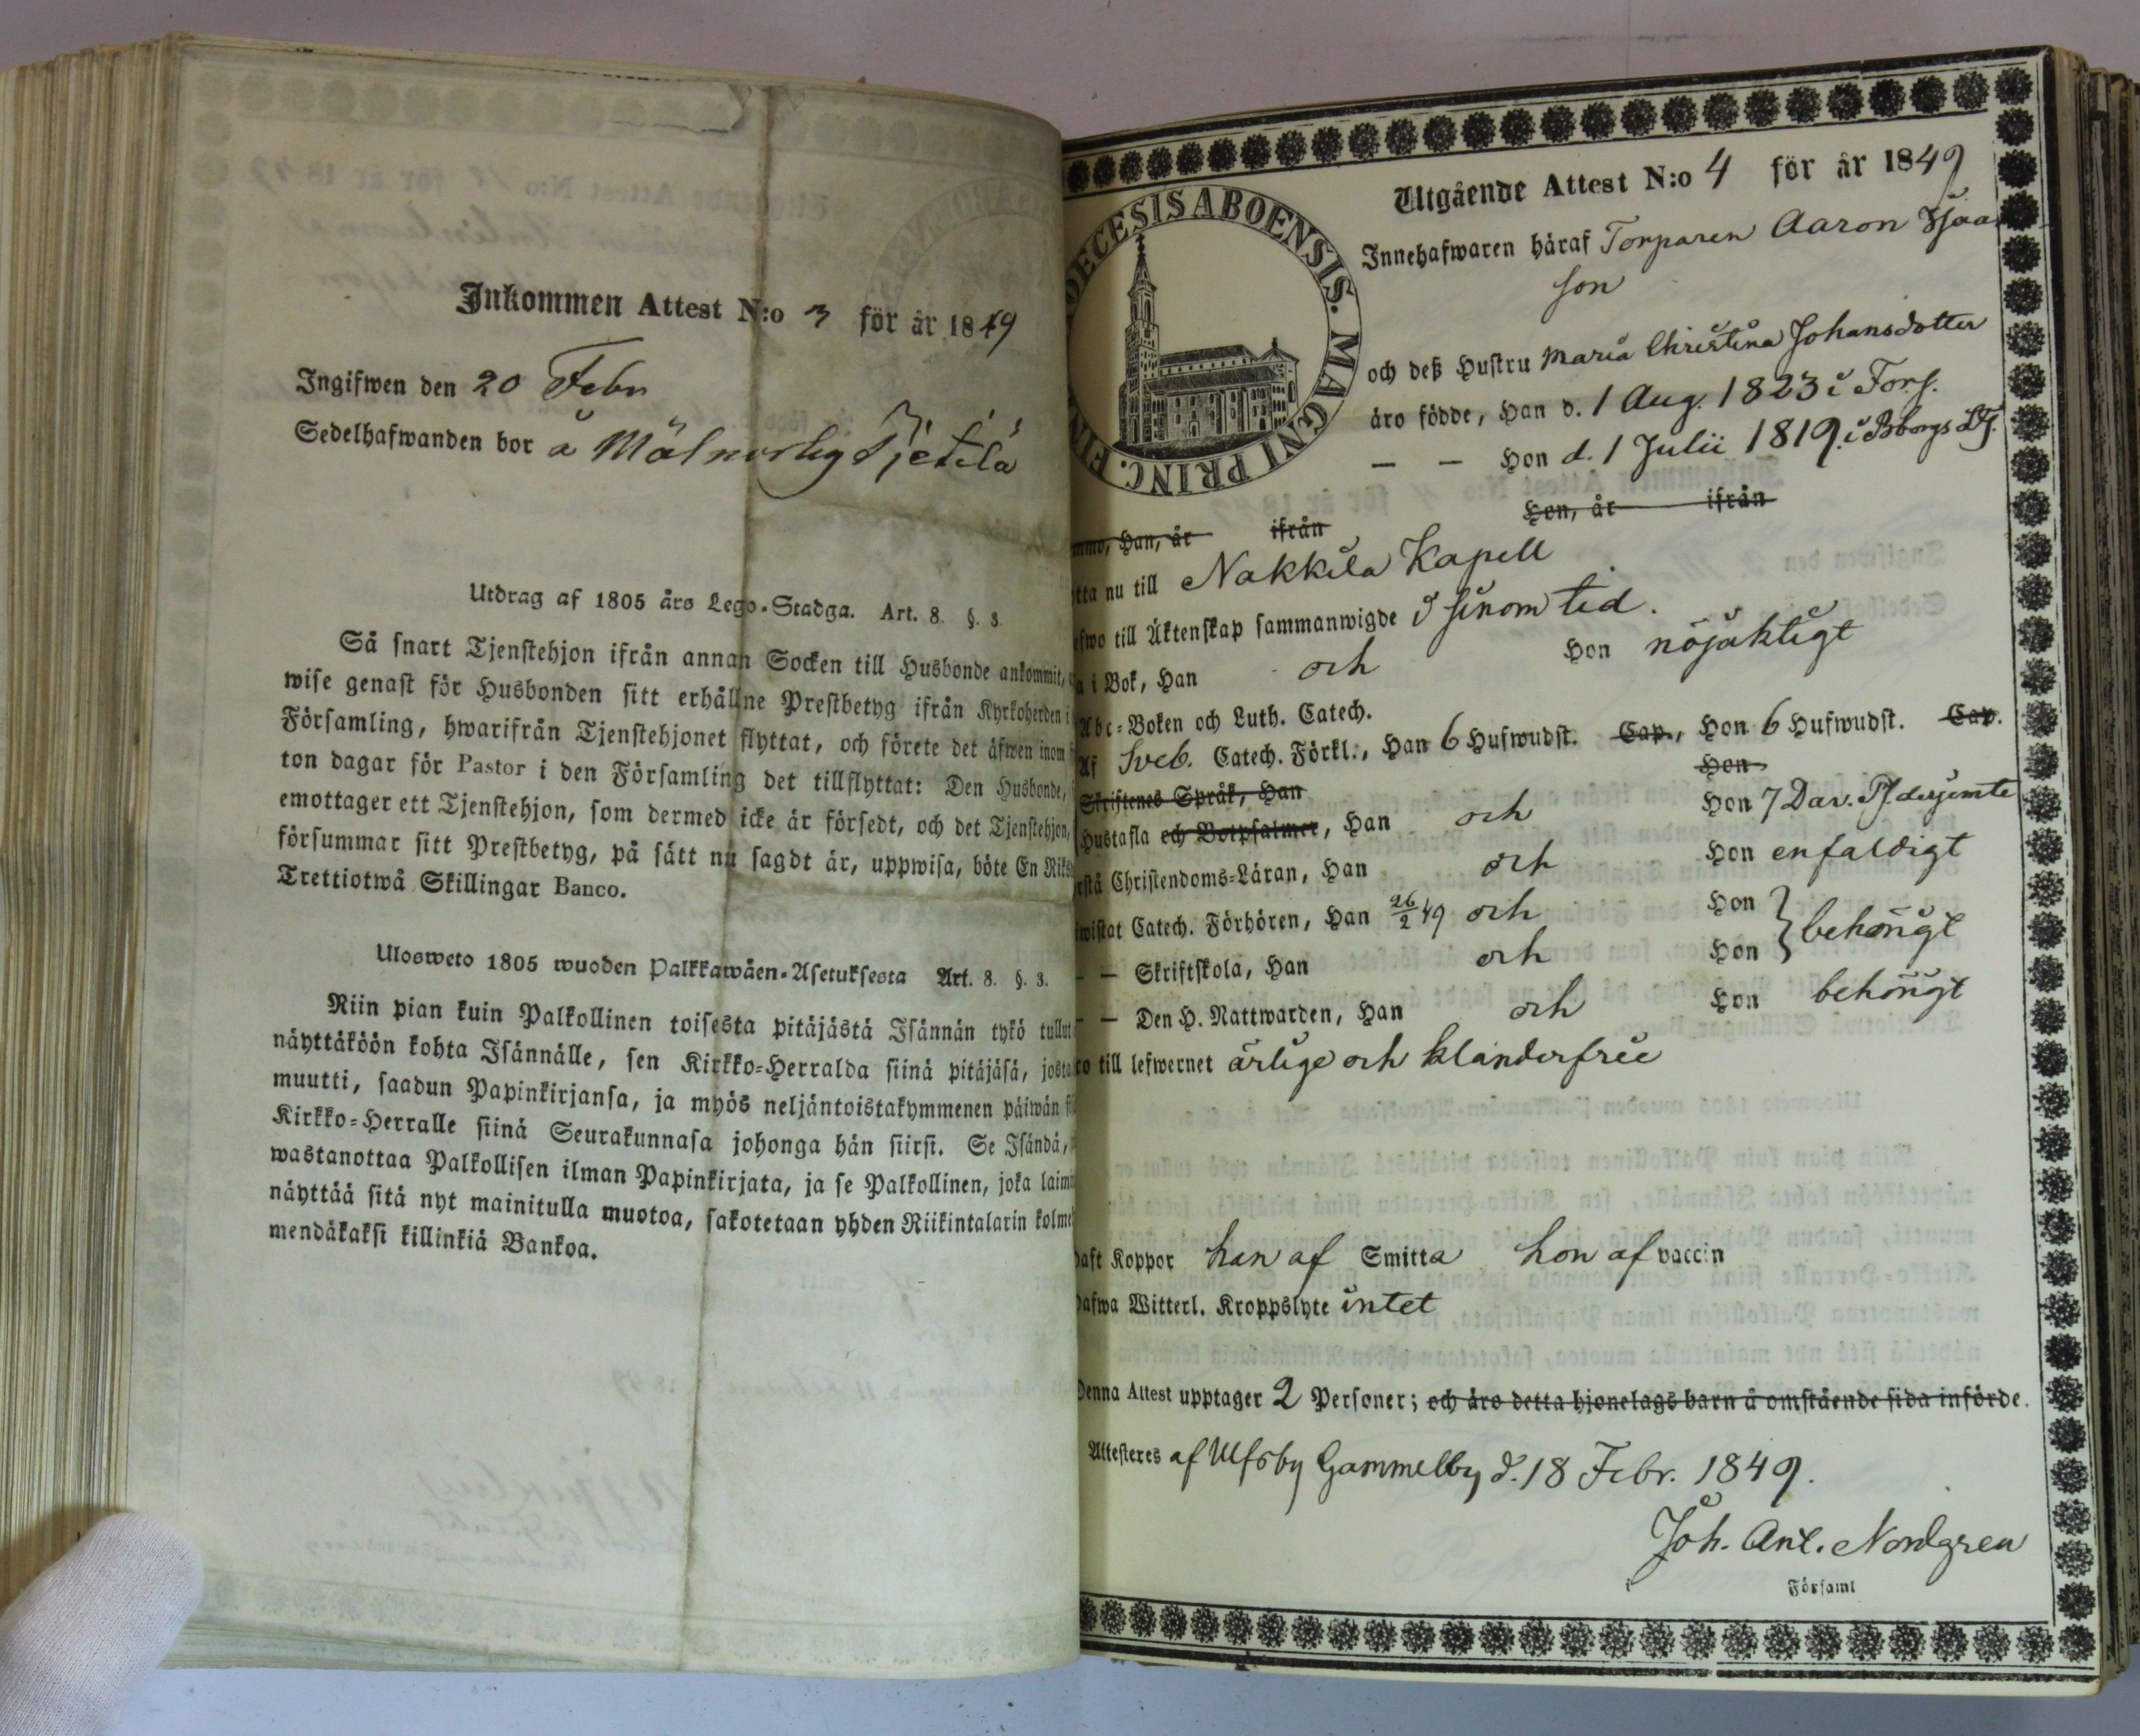 Inkommen Attest N:o 3 för år 1849
Ingifwen den 20 Febr
Sedelhafwanden bor å
Utdrag af 1805 års Lego-Stadga. Art. 8. §. 3.
Så snart Tjenstehjon ifrån annan Socken till Husbonde ankommit,
wise genast för Husbonden sitt erhållne Prestbetyg ifrån Kyrkoherden i
Församling, hwarifrån Tjenstehjonet flyttat, och förete det äfwen inom
ton dagar för Pastor i den Församling det tillflyttat: Den Husbonde,
emottager ett Tjenstehjon, som dermed icke är försedt, och det Tjenstehjon,
försummar sitt Prestbetyg, på sätt nu sagdt är, uppwisa, böte En Riks
Trettiotwå Skillingar Banco.
Ulosweto 1805 wuoden Palkkawäen-Asetuksesta Art. 8. §. 3.
Niin pian kuin Palkollinen toisesta pitäjästä Isännän tykö tullut
näyttäköön kohta Isännälle, sen Kirkko-Herralda siinä pitäjäsä, josta
muutti, saadun Papinkirjansa, ja myös neljäntoistakymmenen päiwän
Kirkko-Herralle siinä Seurakunnasa johonga hän siirsi. Se Isändä,
wastanottaa Palkollisen ilman Papinkirjata, ja se Palkollinen, joka laim
näyttää sitä nyt mainitulla muotoa, sakotetaan yhden Riikintalarin kolme
mendäkaksi killinkiä Bankoa.
DECESIS ABOENSIS. MAGNI PRINC. FIN
Utgående Attest N:o 4 för år 1849
Innehafwaren häraf Torparen Aaron Isaa
son
och deß Hustru Maria Christina Johansdotter
äro födde, Han d. 1 Aug. 1823 i
— — Hon d. 1 Julii 1819. i
mmo, Han, år ifrån Hon, år ifrån
tta nu till Nakkila Kapell
efwo till Äktenskap sammanwigde i sinom tid.
a i Bok, Han och Hon nöjaktigt
Abc-Boken och Luth. Catech.
Af Sveb. Catech. Förkl., Han 6 Hufwudst. Cap., Hon 6 Hufwudst. Cap.
Skriftenes Språk, Han Hon
Hustafla och Botpsalmer, Han och Hon 7 Dav. Ps. desjemte
rstå Christendoms-Läran, Han och Hon enfaldigt
iwistat Catech. Förhören, Han 26/2 49 och Hon } behörigt
— — Skriftskola, Han och Hon
— — Den H. Nattwarden, Han och Hon behörigt
ro till lefwernet ärlige och klanderfrie
Haft Koppor han af Smitta hon af vaccin
Hafwa Witterl. Kroppslyte intet
Denna Attest upptager 2 Personer; och äro detta hjonelags barn å omstående sida införde.
Attesteres af Ulfsby Gammelby d. 18 Febr. 1849.
Joh. Ant. Nordgren
i Församl